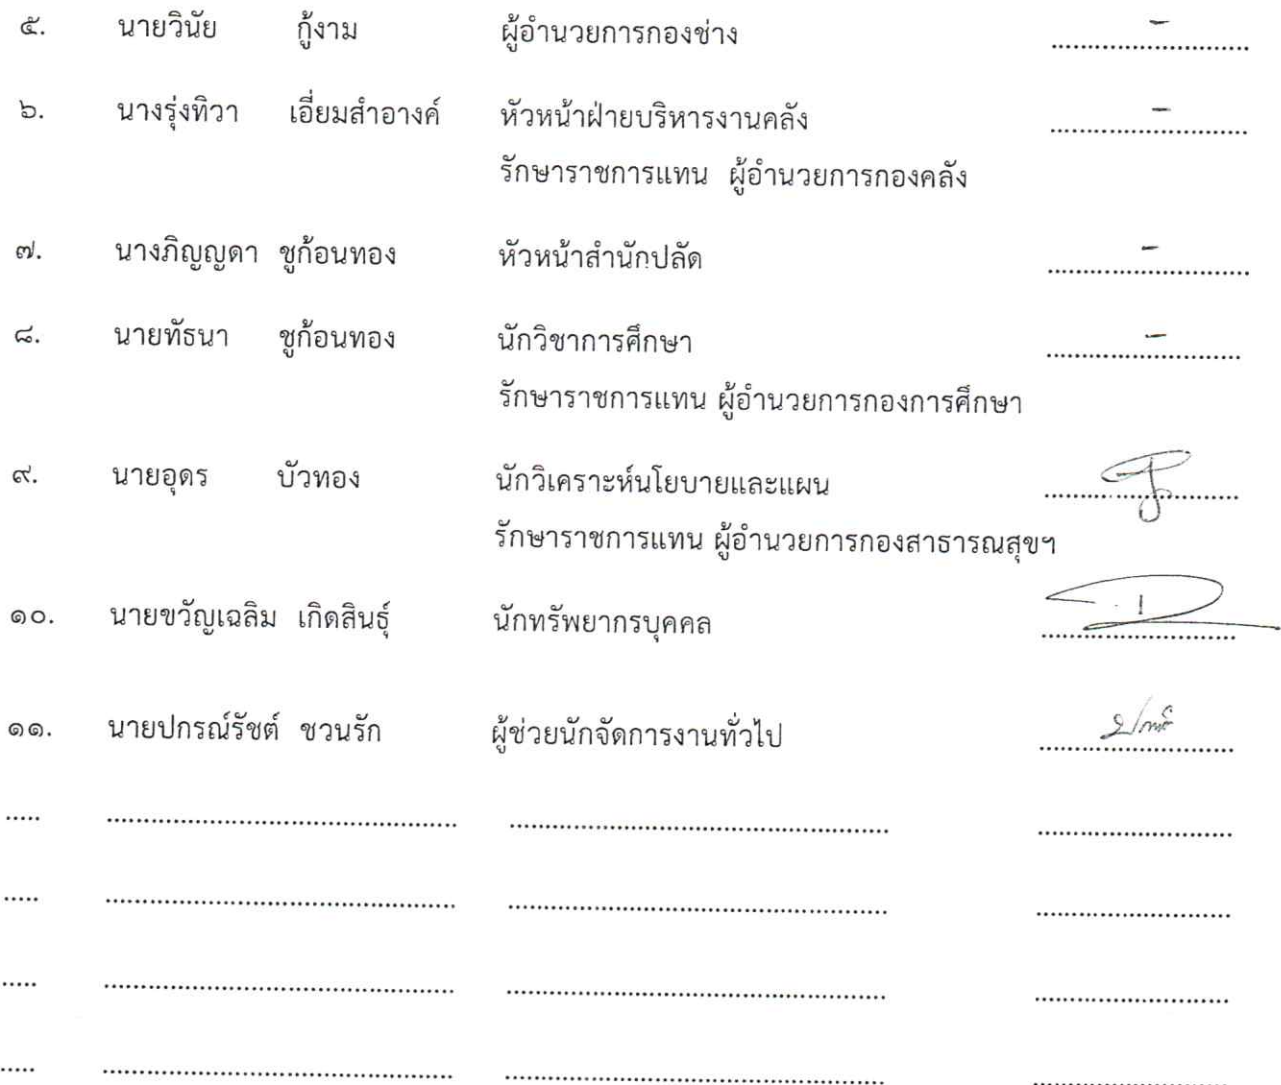 ๕. นายวินัย กู้งาม ผู้อำนวยการกองช่าง -
๖. นางรุ่งทิวา เอี่ยมสำอางค์ หัวหน้าฝ่ายบริหารงานคลัง -
รักษาราชการแทน ผู้อำนวยการกองคลัง
๗. นางภิญญดา ชูก้อนทอง หัวหน้าสำนักปลัด -
๘. นายทัธนา ชูก้อนทอง นักวิชาการศึกษา -
รักษาราชการแทน ผู้อำนวยการกองการศึกษา
๙. นายอุดร บัวทอง นักวิเคราะห์นโยบายและแผน
รักษาราชการแทน ผู้อำนวยการกองสาธารณสุขฯ
๑๐. นายขวัญเฉลิม เกิดสินธุ์ นักทรัพยากรบุคคล
๑๑. นายปกรณ์รัชต์ ชวนรัก ผู้ช่วยนักจัดการงานทั่วไป